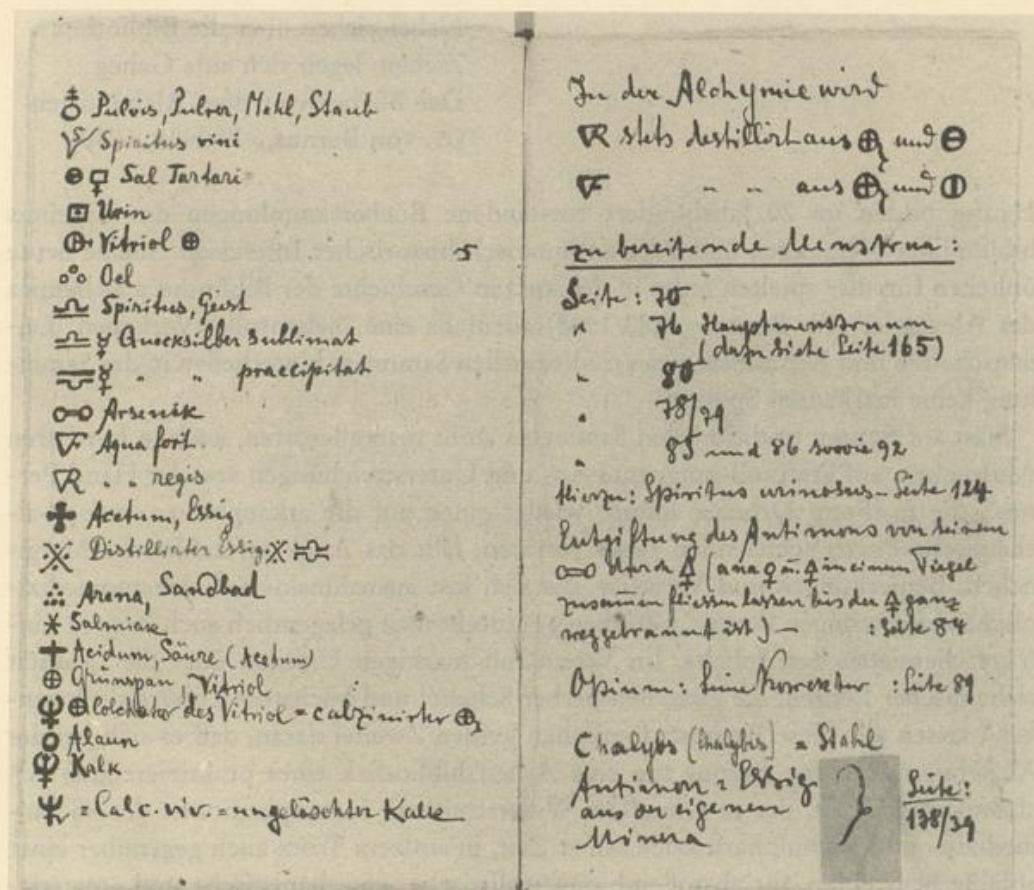 Pulvis, Pulver, Mehl, Staub
Spiritus vini
Sal Tartari
Urin
Vitriol
Oel
Spiritus, Geist
Quecksilber Sublimat
" " praecipitat
Arsenik
Aqua fort.
" regis
Acetum, Essig
Distillirter Essig
Arena, Sandbad
Salmiak
Acidum, Säure (Acetum)
Grünspan, Vitriol
Colchotar des Vitriol = calzinirter
Alaun
Kalk
= Calc. viv. = ungelöschter Kalk
5
In der Alchymie wird
R stets destillirt aus und
F " " aus und
zu bereitende Menstrua:
Seite: 70
" 76 Hauptmenstruum
(dazu siehe Seite 165)
" 80
" 78/79
" 85 und 86 sowie 92
Hierzu: Spiritus urinosus - Seite 124
Entgiftung des Antimons von seinem
durch (ana u. in einem Tiegel
zusammenfliessen lassen bis der ganz
weggebrannt ist) — : Seite 84
Opium: Seine Korrektur : Seite 89
Chalybs (chalybis) = Stahl
= Essig
aus der eigenen
Minera
Seite:
138/39